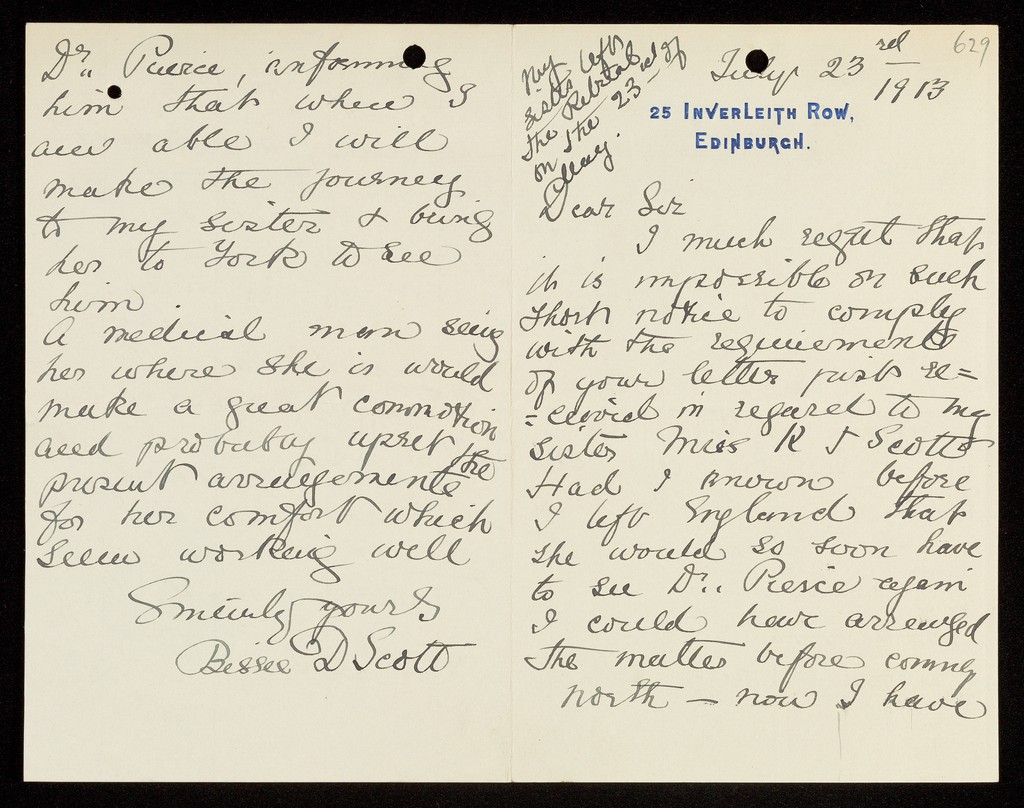 629
July 23rd
1913
25 INVERLEITH ROW,
EDINBURGH.
My
sister left
the Retreat
on the 23rd of
May.
Dear Sir
I much regret that
it is impossible on such
short notice to comply
with the requirements
of your letter just re=
=ceived in regard to my
sister Miss K J Scott
Had I known before
I left England that
she would so soon have
to see Dr,, Pierce again
I could have arranged
the matter before coming
north — now I have
Dr,, Pierce, informing
him that when I
am able I will
make the journey
to my sister & bring
her to York to see
him.
A medical man seeing
her where she is would
make a great commotion
and probably upset the
present arrangements
for her comfort which
seem working well
Sincerely yours
Bessie D Scott